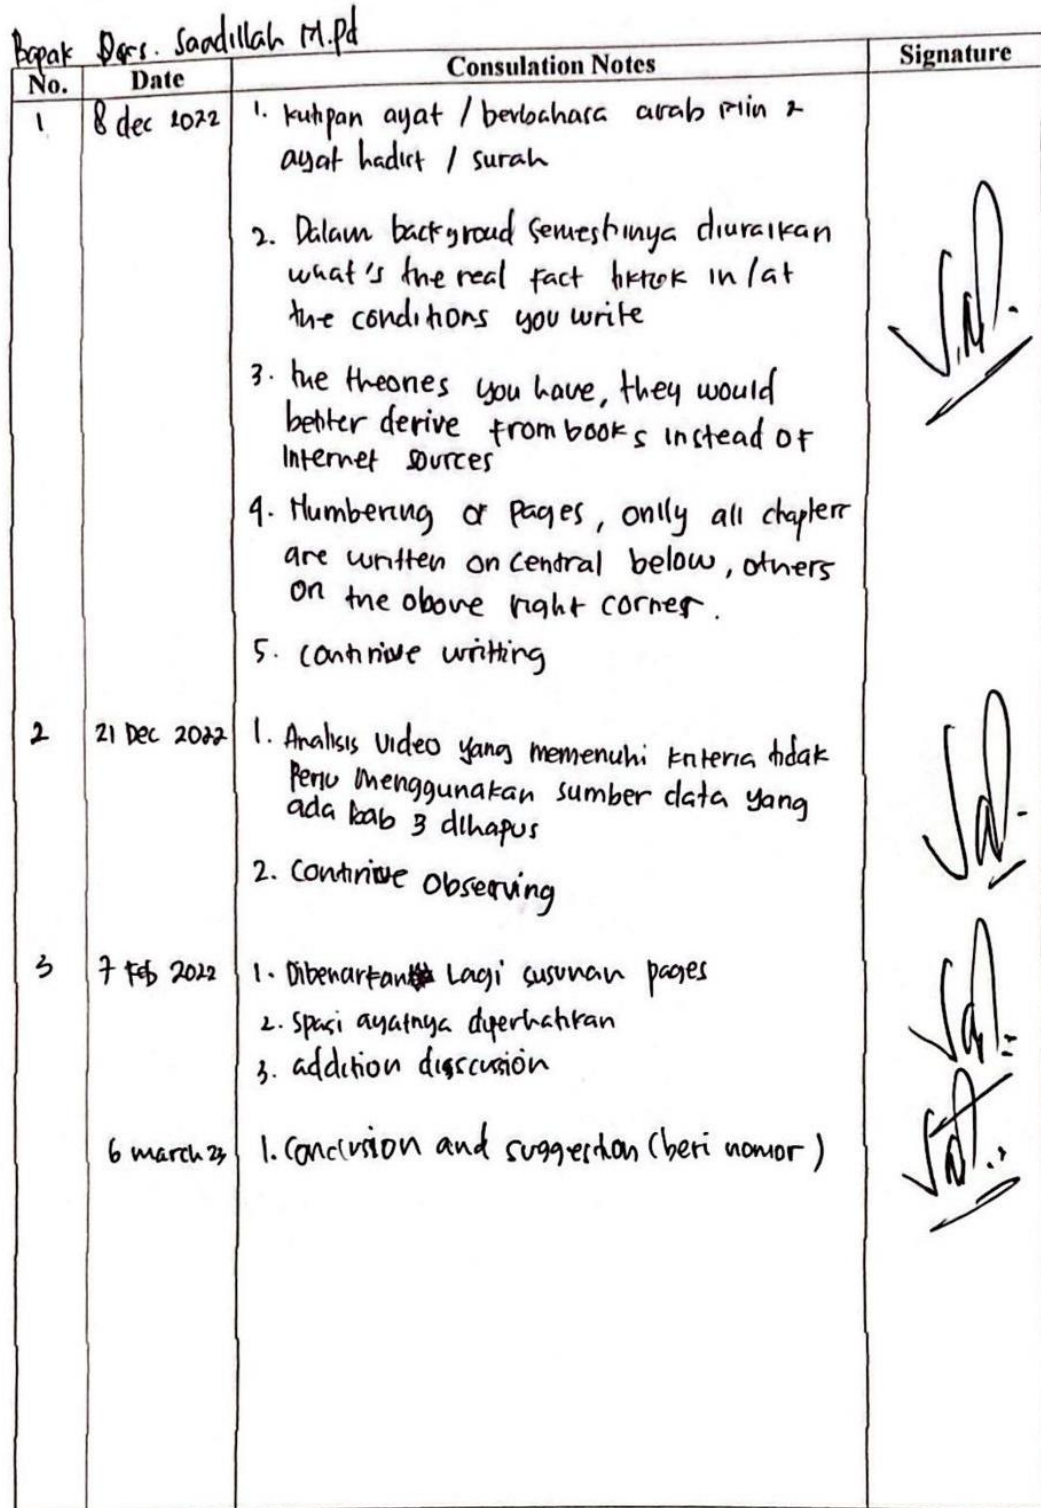 Bapak Drs. Saadillah M.Pd
No. Date Consulation Notes Signature
1 8 dec 2022 1. kutipan ayat / berbahasa arab min 2
ayat hadist / surah
2. Dalam backgroud semestinya diuraikan
what's the real fact tiktok in/at
the conditions you write
3. the theories you have, they would
better derive from books instead of
Internet sources
4. Numbering of Pages, onlly all chapters
are written on central below, others
on the obove right corner.
5. continue writting
2 21 Dec 2022 1. Analisis Video yang memenuhi kriteria tidak
Perlu menggunakan sumber data yang
ada bab 3 dihapus
2. Continue Observing
3 7 Feb 2022 1. Dibenarkan Lagi susunan pages
2. Spasi ayatnya diperhatikan
3. addition disscusion
6 march 23 1. Conclusion and suggestion (beri nomor)